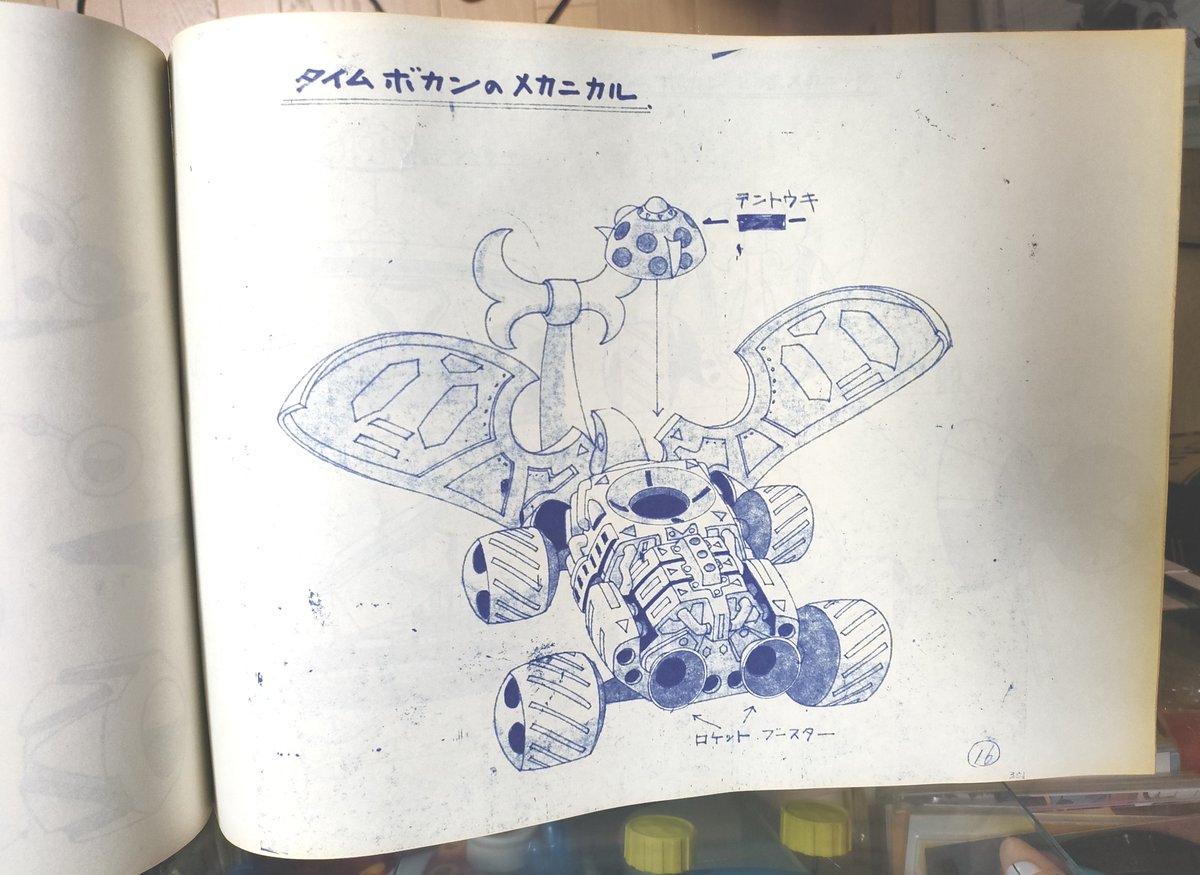 タイムボカンのメカニカル
テントウキ
ロケットブースター
16